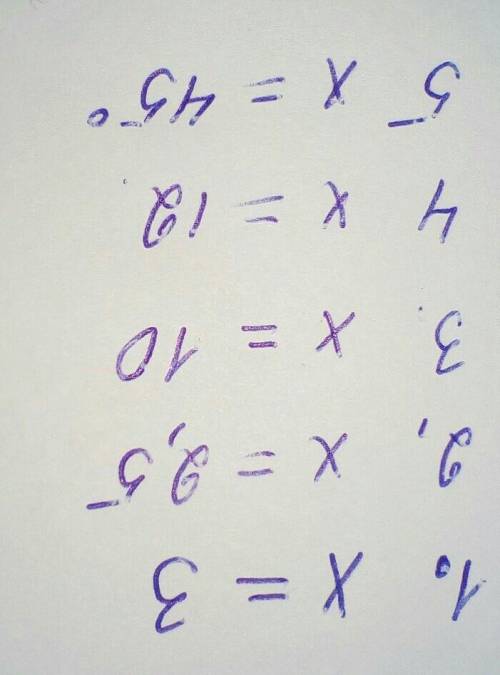 1. x = 3
2, x = 2,5
3 x = 10
4 x = 12
5 x = 45°